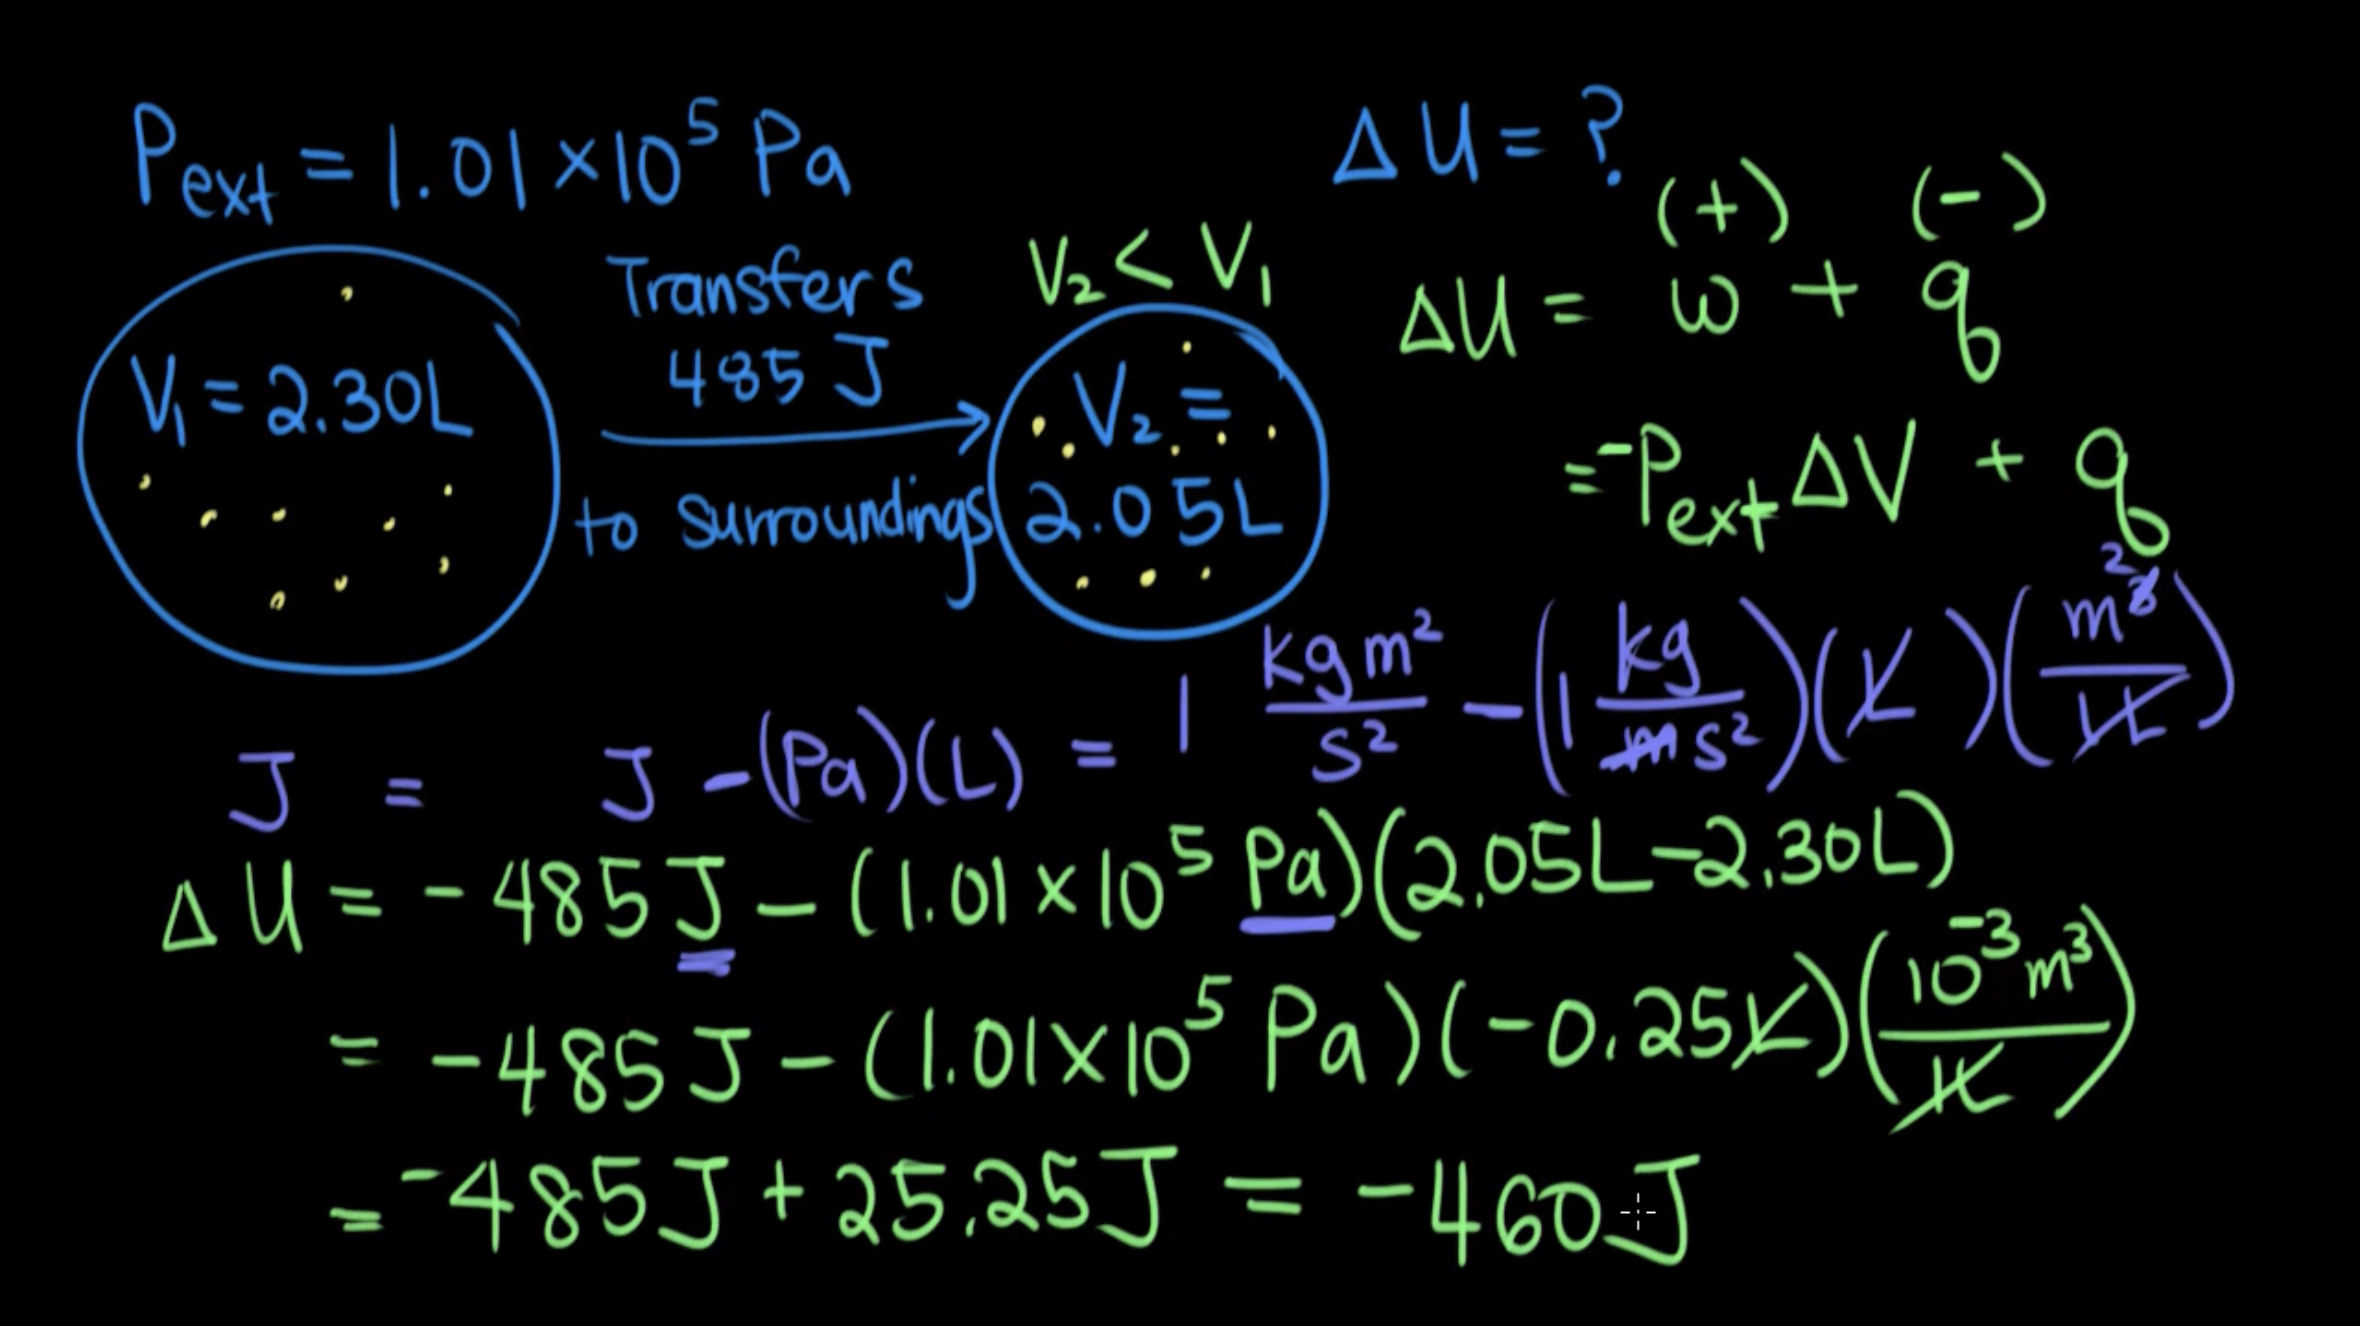 P_ext = 1.01 × 10⁵ Pa
ΔU = ?
(+) (-)
ΔU = w + q
= -P_ext ΔV + q
V₁ = 2.30L
Transfers
485 J
to surroundings
V₂ < V₁
V₂ =
2.05L
J = J - (Pa)(L) = 1 kg m²/s² - (1 kg/m s²)(L)(m³/1L) 2
ΔU = -485 J - (1.01 × 10⁵ Pa)(2.05L - 2.30L)
= -485 J - (1.01 × 10⁵ Pa)(-0.25L)(10⁻³ m³/1L)
= -485 J + 25.25 J = -460 J